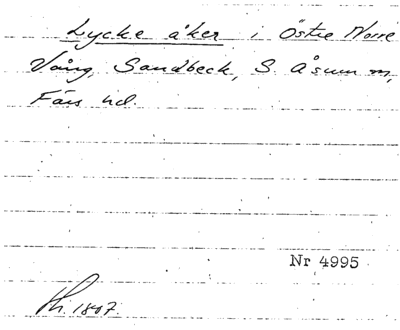 Lycke åker i Östre Norre
Vång, Sandbeck, S. Åsum m,
Färs hd.
Nr 4995
1807.